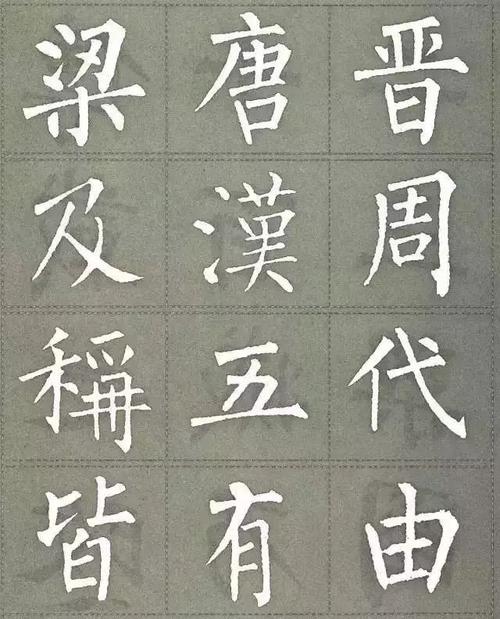 梁唐晋
及漢周
稱五代
皆有由